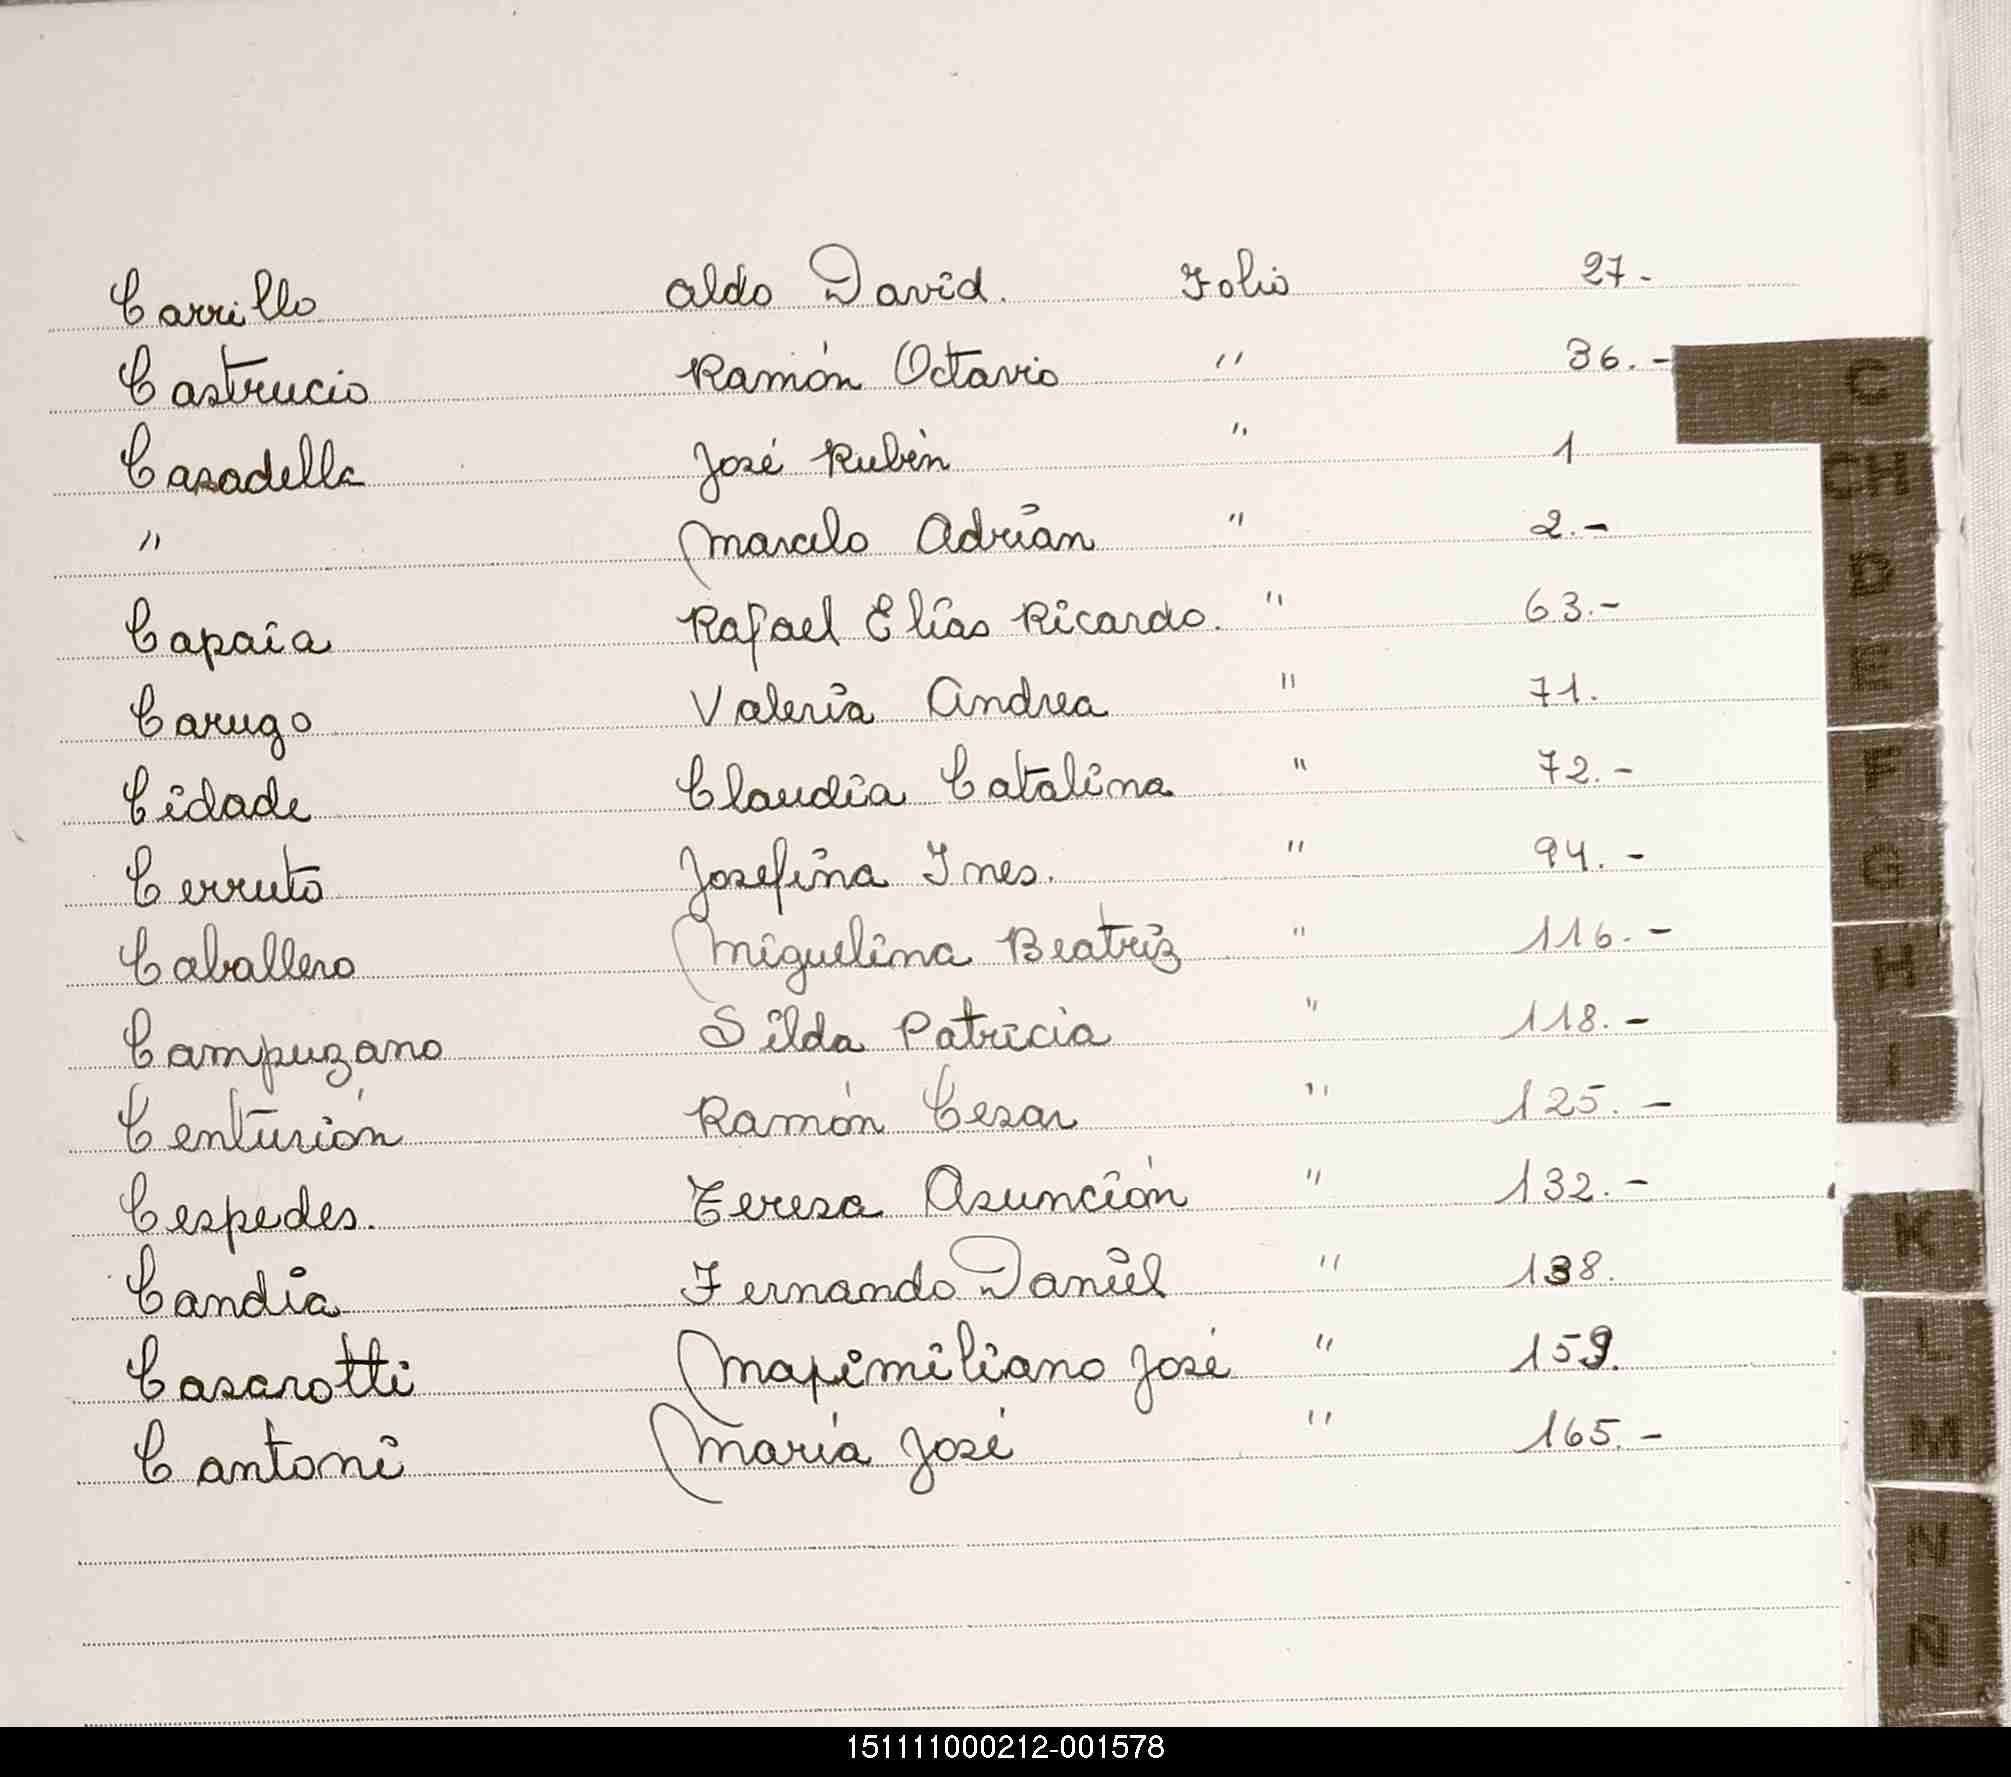 Carrillo Aldo David. Folio 27.-
Castrucio Ramón Octavio " 36.-
Casadella José Rubén " 1
" Marcelo Adrián " 2.-
Capaia Rafael Elías Ricardo. " 63.-
Carugo Valeria Andrea " 71.
Cidade Claudia Catalina " 72.-
Cerruto Josefina Ines. " 94.-
Caballero Miguelina Beatriz " 116.-
Campuzano Silda Patricia " 118.-
Centurión Ramón Cesar " 125.-
Cespedes. Teresa Asunción " 132.-
Candia Fernando Daniel " 138.
Casarotti Maximiliano José " 159.
Cantoni María José " 165.-
C
CH
D
E
F
G
H
I
K
L
M
N
Ñ
151111000212-001578